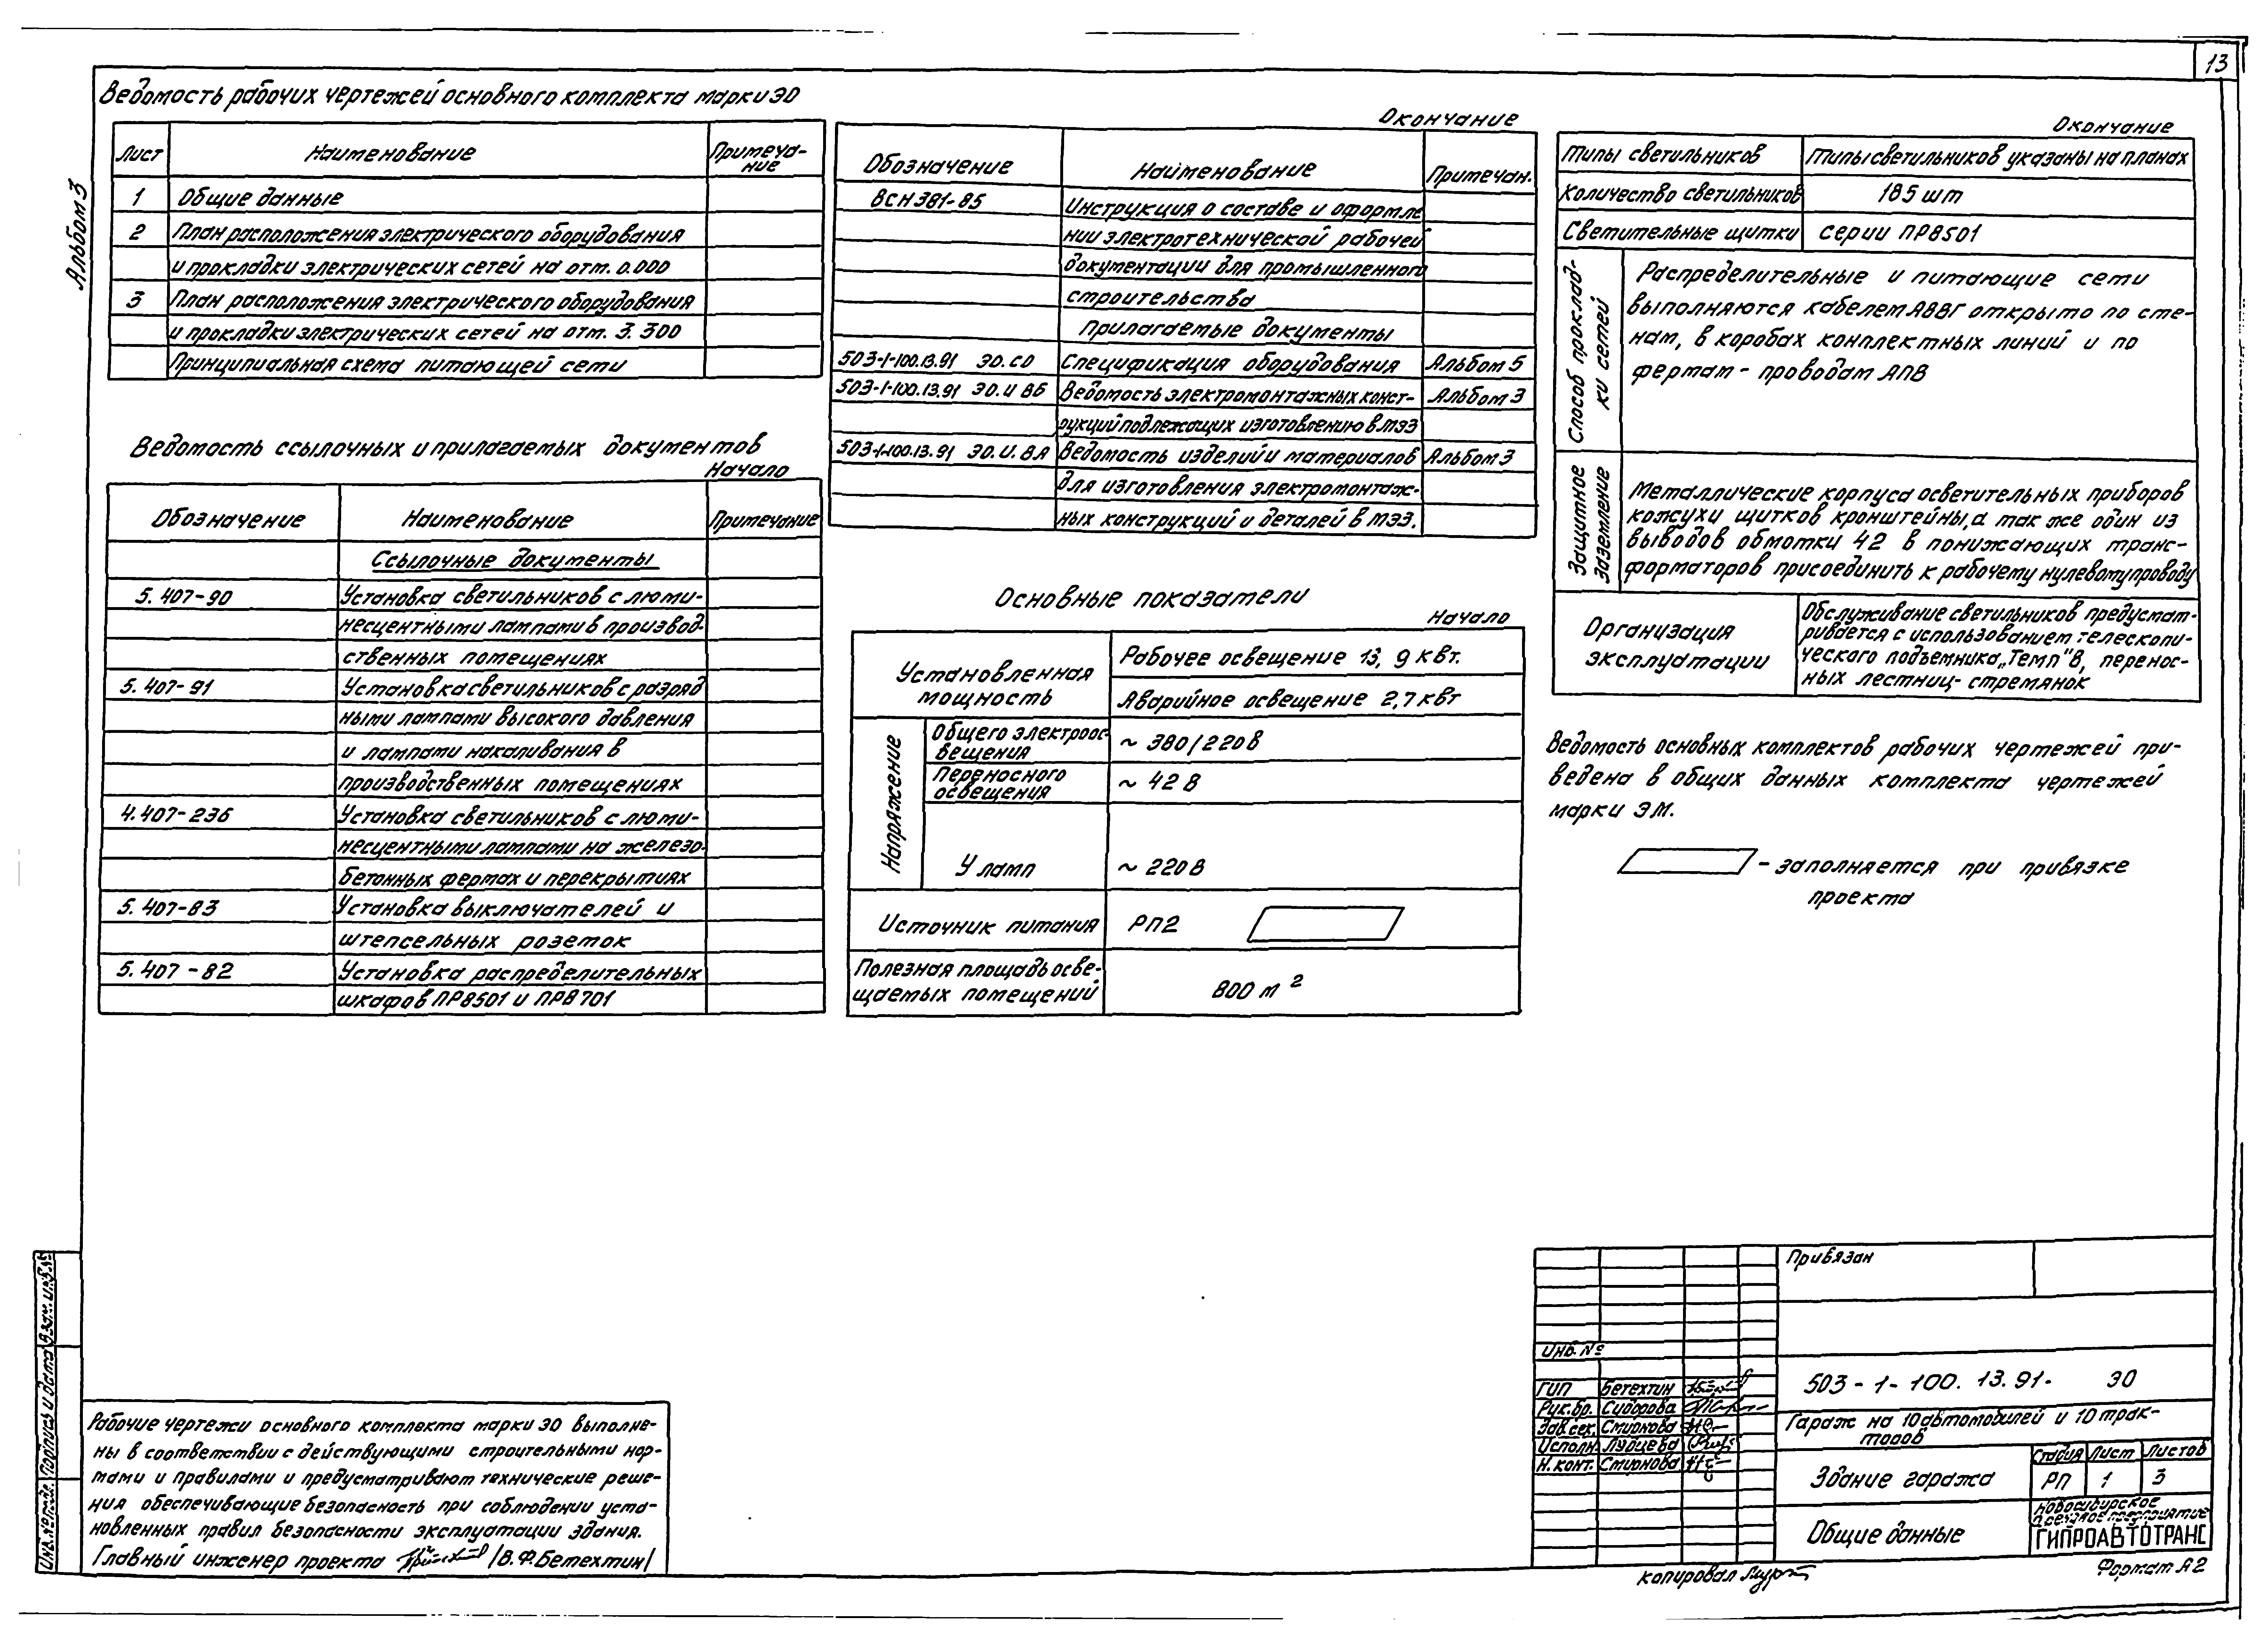 13
Альбом 3
Ведомость рабочих чертежей основного комплекта марки ЭО
Лист
Наименование
Примеча-
ние
1
Общие данные
2
План расположения электрического оборудования
и прокладки электрических сетей на отм. 0.000
3
План расположения электрического оборудования
и прокладки электрических сетей на отм. 3.300
Принципиальная схема питающей сети
Ведомость ссылочных и прилагаемых документов
Начало
Обозначение
Наименование
Примечание
Ссылочные документы
5.407-90
Установка светильников с люми-
несцентными лампами в производ-
ственных помещениях
5.407-91
Установка светильников с разряд
ными лампами высокого давления
и лампами накаливания в
производственных помещениях
4.407-236
Установка светильников с люми-
несцентными лампами на железо-
бетонных фермах и перекрытиях
5.407-83
Установка выключателей и
штепсельных розеток
5.407-82
Установка распределительных
шкафов ПР8501 и ПР8701
Окончание
Обозначение
Наименование
Примечан.
ВСН 381-85
Инструкция о составе и оформле
нии электротехнической рабочей
документации для промышленного
строительства
Прилагаемые документы
503-1-100.13.91 ЭО.СО
Спецификация оборудования
Альбом 5
503-1-100.13.91 ЭО.И ВБ
Ведомость электромонтажных конст-
Альбом 3
рукций подлежащих изготовлению в МЭЗ
503-1-100.13.91 ЭО.И.ВА
Ведомость изделий и материалов
Альбом 3
для изготовления электромонтаж-
ных конструкций и деталей в МЭЗ.
Основные показатели
Начало
Установленная
мощность
Рабочее освещение 13,9 кВт.
Аварийное освещение 2,7 кВт
Напряжение
Общего электроос
вещения
~ 380/220В
Переносного
освещения
~ 42 В
У ламп
~ 220В
Источник питания
РП2
Полезная площадь осве-
щаемых помещений
800 м 2
Окончание
Типы светильников
Типы светильников указаны на планах
Количество светильников
185 шт
Светительные щитки
серии ПР8501
Способ проклад-
ки сетей
Распределительные и питающие сети
выполняются кабелем АВВГ открыто по сте-
нам, в коробах конплектных линий и по
фермам - проводам АПВ
Защитное
заземление
Металлические корпуса осветительных приборов
кожухи щитков кронштейны, а так же один из
выводов обмотки 42 В понижающих транс-
форматоров присоединить к рабочему нулевому проводу
Организация
эксплуатации
Обслуживание светильников предусмат-
ривается с использованием телескопи-
ческого подъемника „Темп"8, перенос-
ных лестниц-стремянок
Ведомость основных комплектов рабочих чертежей при-
ведена в общих данных комплекта чертежей
марки ЭМ.
- заполняется при привязке
проекта
Взам. инв.№
Подпись и дата
Инв. № подл.
Рабочие чертежи основного комплекта марки ЭО выполне-
ны в соответствии с действующими строительными нор-
мами и правилами и предусматривают технические реше-
ния обеспечивающие безопасность при соблюдении уста-
новленных правил безопасности эксплуатации здания.
Главный инженер проекта /В.Ф.Бетехтин/
Привязан
Инв. №
ГИП Бетехтин
Рук.бр. Сидорова
Зав.сек. Смирнова
Исполн. Луцева
Н.конт. Смирнова
503-1-100.13.91- ЭО
Гараж на 10 автомобилей и 10 трак-
торов
Здание гаража
Стадия Лист Листов
РП 1 3
Общие данные
Новосибирское
проектное предприятие
ГИПРОАВТОТРАНС
копировал
Формат А2